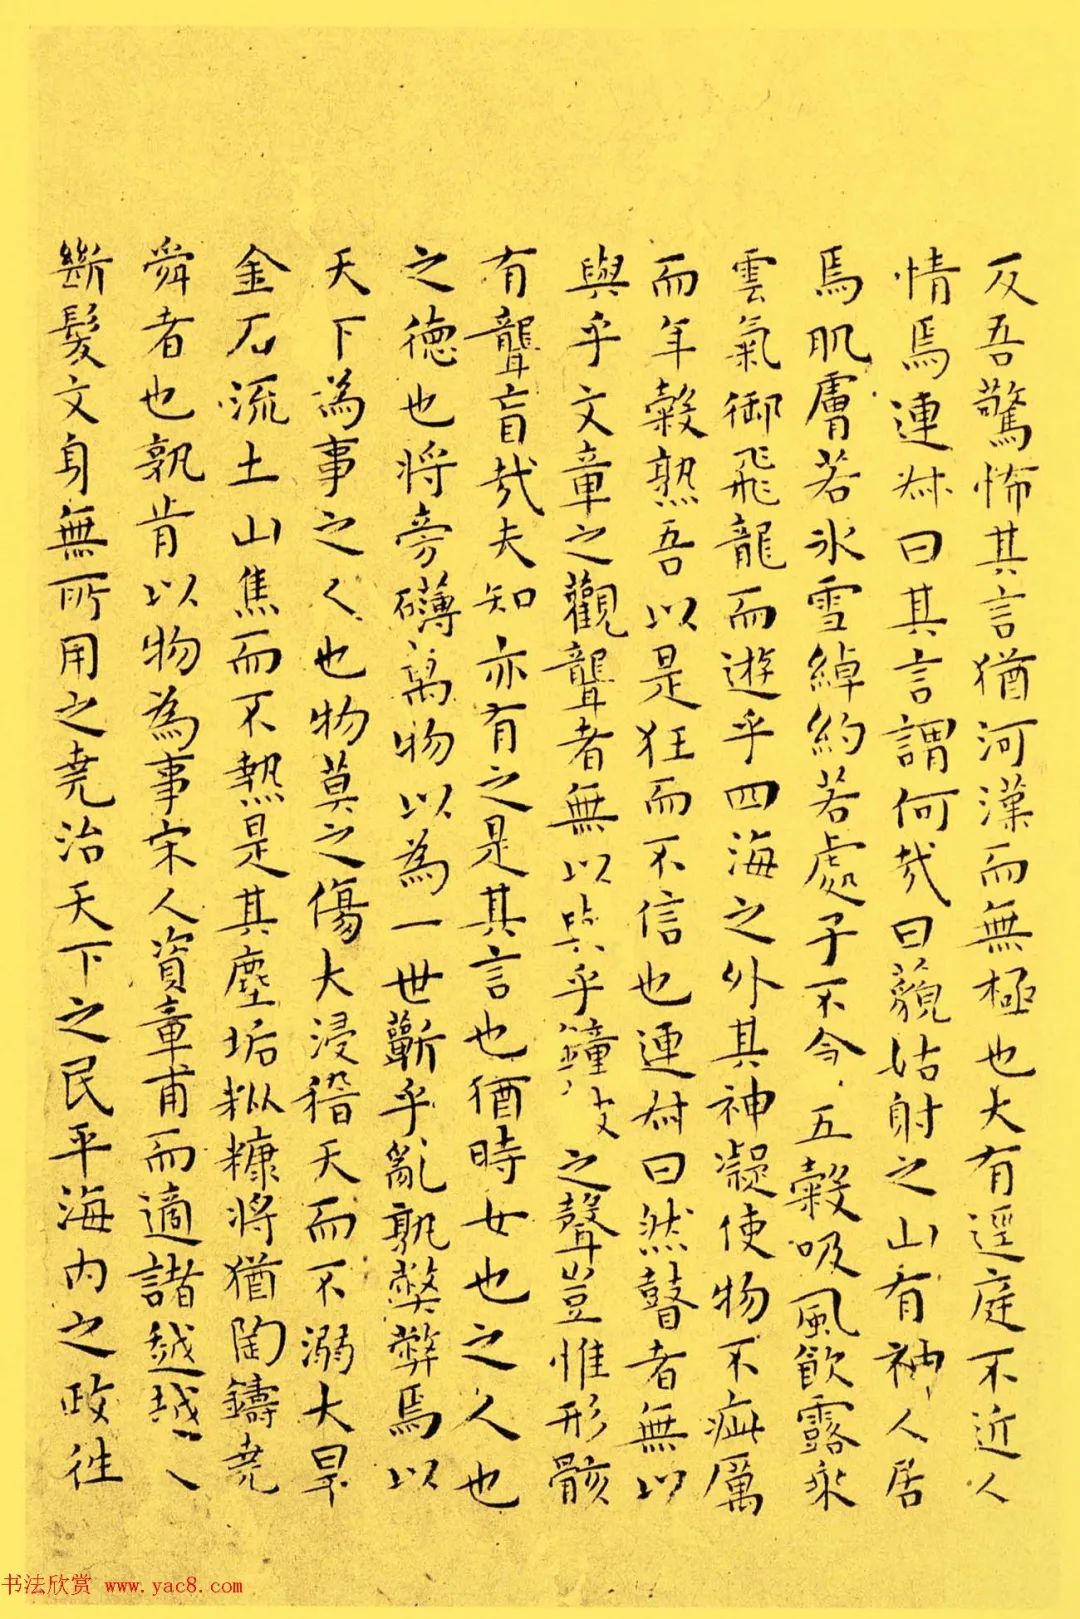 反吾驚怖其言猶河漢而無極也大有逕庭不近人
情焉連叔曰其言謂何哉曰藐姑射之山有神人居
焉肌膚若冰雪綽約若處子不令五穀吸風飲露乘
雲氣御飛龍而遊乎四海之外其神凝使物不疵厲
而年穀熟吾以是狂而不信也連叔曰然瞽者無以
與乎文章之觀聾者無以與乎鐘皮之聲豈惟形骸
有聾盲哉夫知亦有之是其言也猶時女也之人也
之德也將旁礴萬物以為一世蘄乎亂孰弊弊焉以
天下為事之人也物莫之傷大浸稽天而不溺大旱
金石流土山焦而不熱是其塵垢粃糠將猶陶鑄堯
舜者也孰肯以物為事宋人資章甫而適諸越越〻
斷髮文身無所用之堯治天下之民平海內之政往
书法欣赏 www.yac8.com